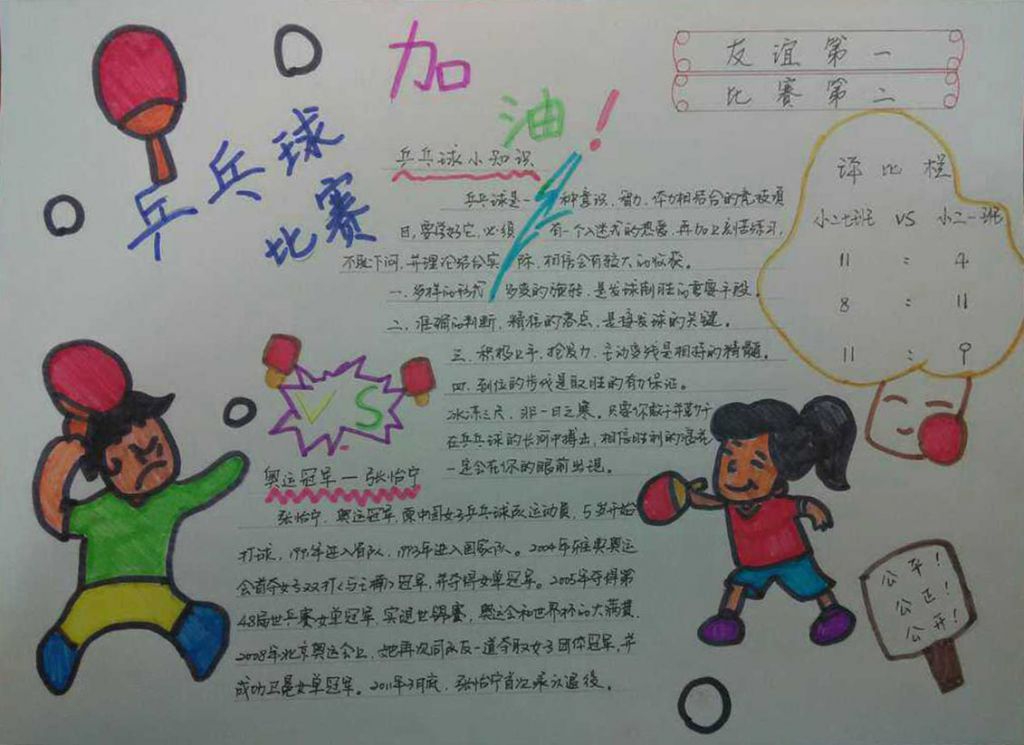 加油!
乒乓球
比赛
友谊第一
比赛第二
乒乓球小知识
乒乓球是一种意识、智力、体力相结合的竞技项
目,要学好它,必须有一个入迷式的热爱,再加上刻苦练习,
不耻下问,并理论结合实际,相信会有较大的收获。
一、多样的形式、多变的旋转,是发球制胜的重要手段。
二、准确的判断,精信的落点,是接发球的关键。
三、积极上手,抢发力,主动变线是相持的精髓。
四、到位的步伐是取胜的有力保证。
冰冻三尺,非一日之寒。只要你敢于并勤于
在乒乓球的长河中搏击,相信胜利的浪花
一定会在你的眼前出现。
评比栏
小二七班 VS 小二一班
11 : 4
8 : 11
11 : 9
VS
奥运冠军—张怡宁
张怡宁,奥运冠军,原中国女子乒乓球队运动员,5岁开始
打球,1991年进入省队,1993年进入国家队。2004年雅典奥运
会首夺女子双打(与王楠)冠军,并夺得女单冠军。2005年夺得第
48届世乒赛女单冠军,实现世锦赛,奥运会和世界杯的大满贯。
2008年北京奥运会上,她再次同队友一道夺取女子团体冠军,并
成功卫冕女单冠军。2011年3月底,张怡宁首次承认退役。
公平!
公正!
公开!